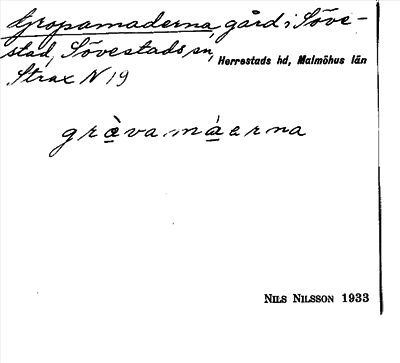 Gropamaderna, gård i Söve-
stad, Sövestads sn, Herrestads hd, Malmöhus län
Strax N 19
gràvamáerna
NILS NILSSON 1933